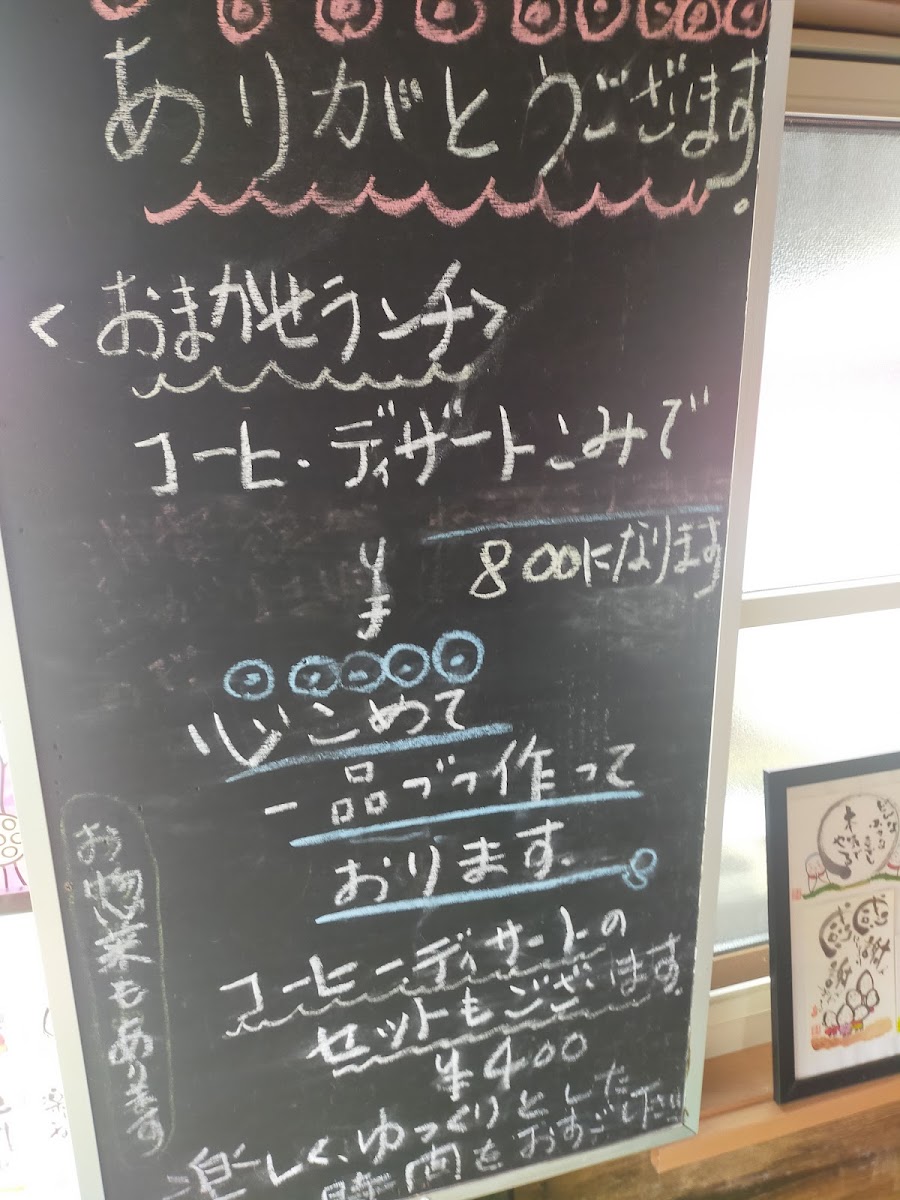 ありがとうございます。
<おまかせランチ>
コーヒ・ディザートこみで
¥800になります
心こめて
一品づつ作って
おります。
コーヒーディザートの
セットもございます。
¥400
楽しく、ゆっくりとした
時間をおすごし下さい
お惣菜もあります